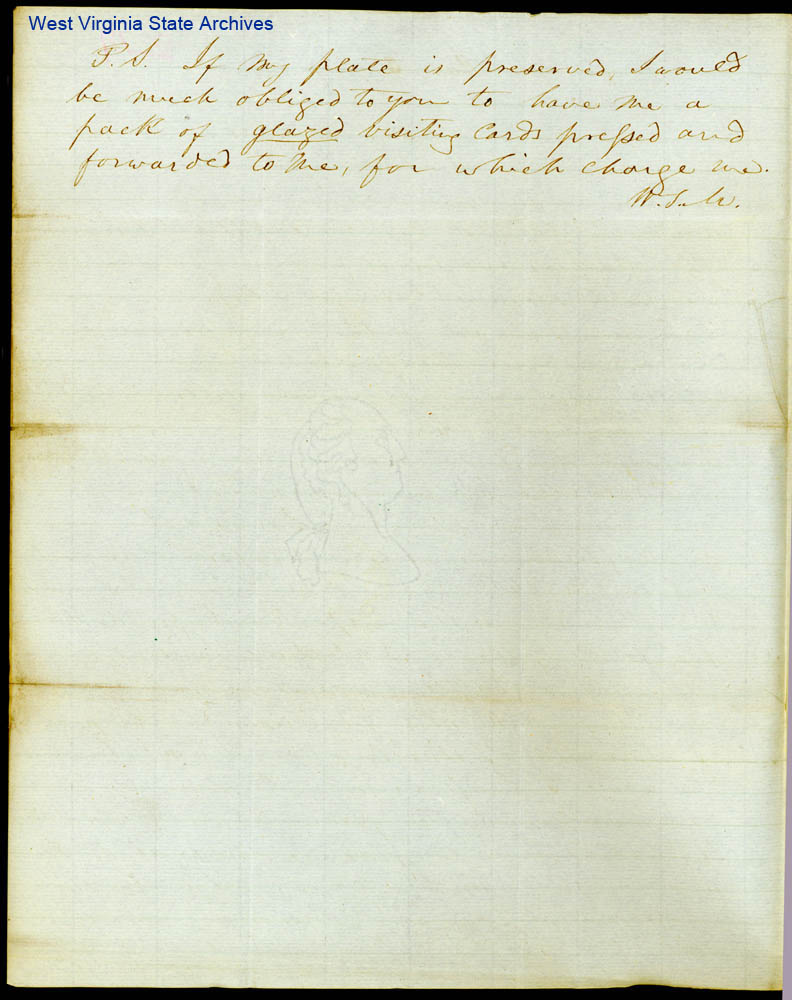 West Virginia State Archives
P.S. If my plate is preserved, I would
be much obliged to you to have me a
pack of glazed visiting cards pressed and
forwarded to me, for which charge me.